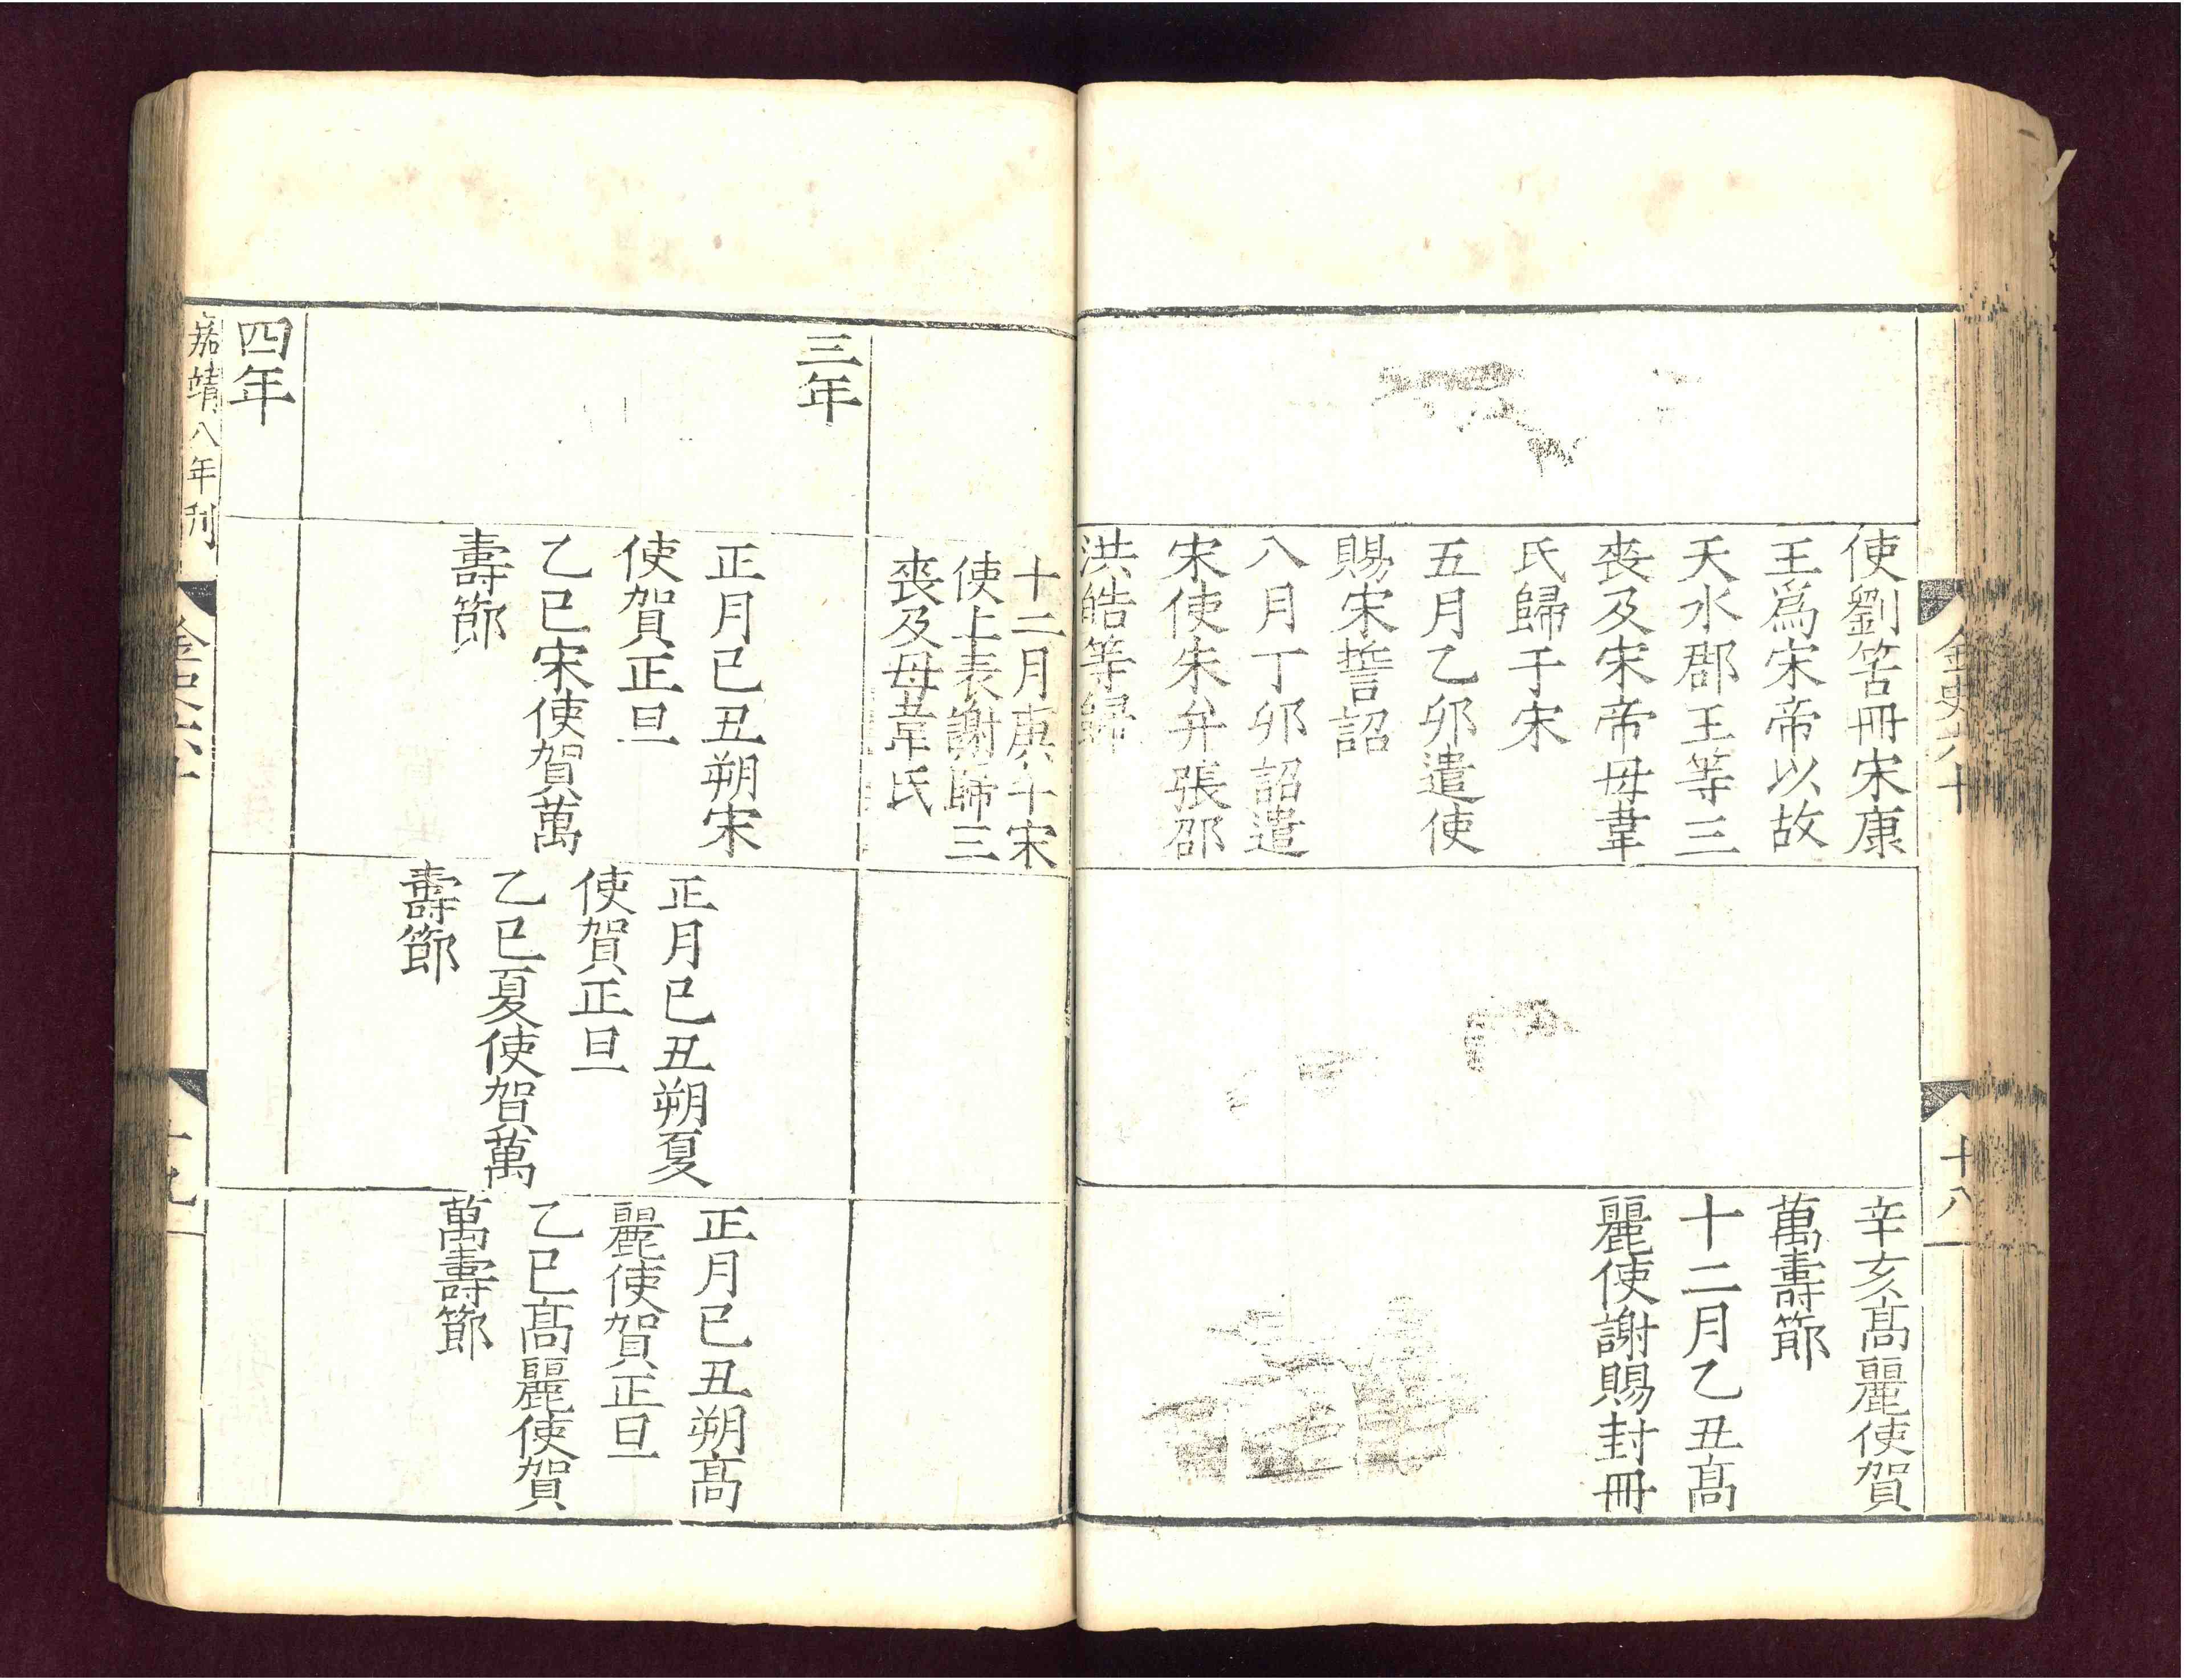 金史六十
十八
使劉筈冊宋康
王爲宋帝以故
天水郡王等三
喪及宋帝母韋
氏歸于宋
五月乙卯遣使
賜宋誓詔
八月丁卯詔遣
宋使朱弁張邵
洪皓等歸
辛亥高麗使賀
萬壽節
十二月乙丑高
麗使謝賜封冊
十二月庚午宋
使上表謝歸三
喪及母韋氏
三年
正月己丑朔宋
使賀正旦
乙巳宋使賀萬
壽節
正月己丑朔夏
使賀正旦
乙巳夏使賀萬
壽節
正月己丑朔高
麗使賀正旦
乙巳高麗使賀
萬壽節
四年
嘉靖八年刊
金史六十
十九